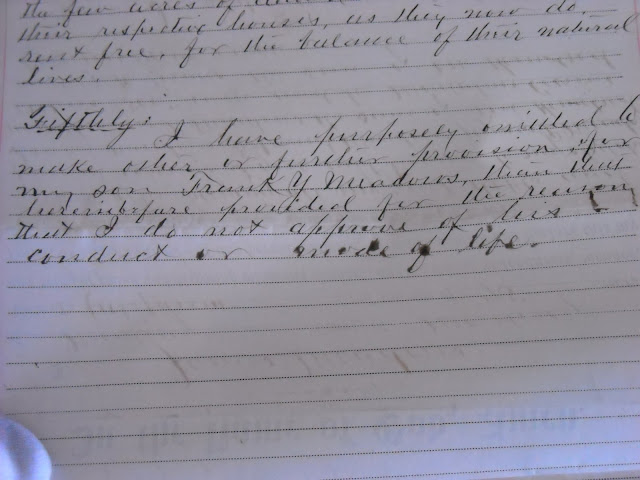 the few acres of
their respective houses, as they now do,
rent free, for the balance of their natural
lives.
Sixthly:
I have purposely omitted to
make other or further provision for
my son Frank Y Meadows than that
hereinbefore provided for the reason
that I do not approve of his
conduct or mode of life.